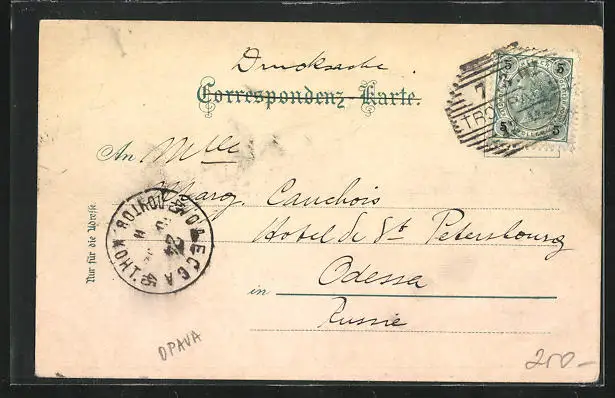 Drucksache.
Correspondenz-Karte.
5 5
7
TROPPAU
5 5
An Mlle
Marg. Cauchois
Hotel de St Petersbourg
Odessa
in
Russie
Nur für die Adresse.
ОДЕССА
OPAVA
200-